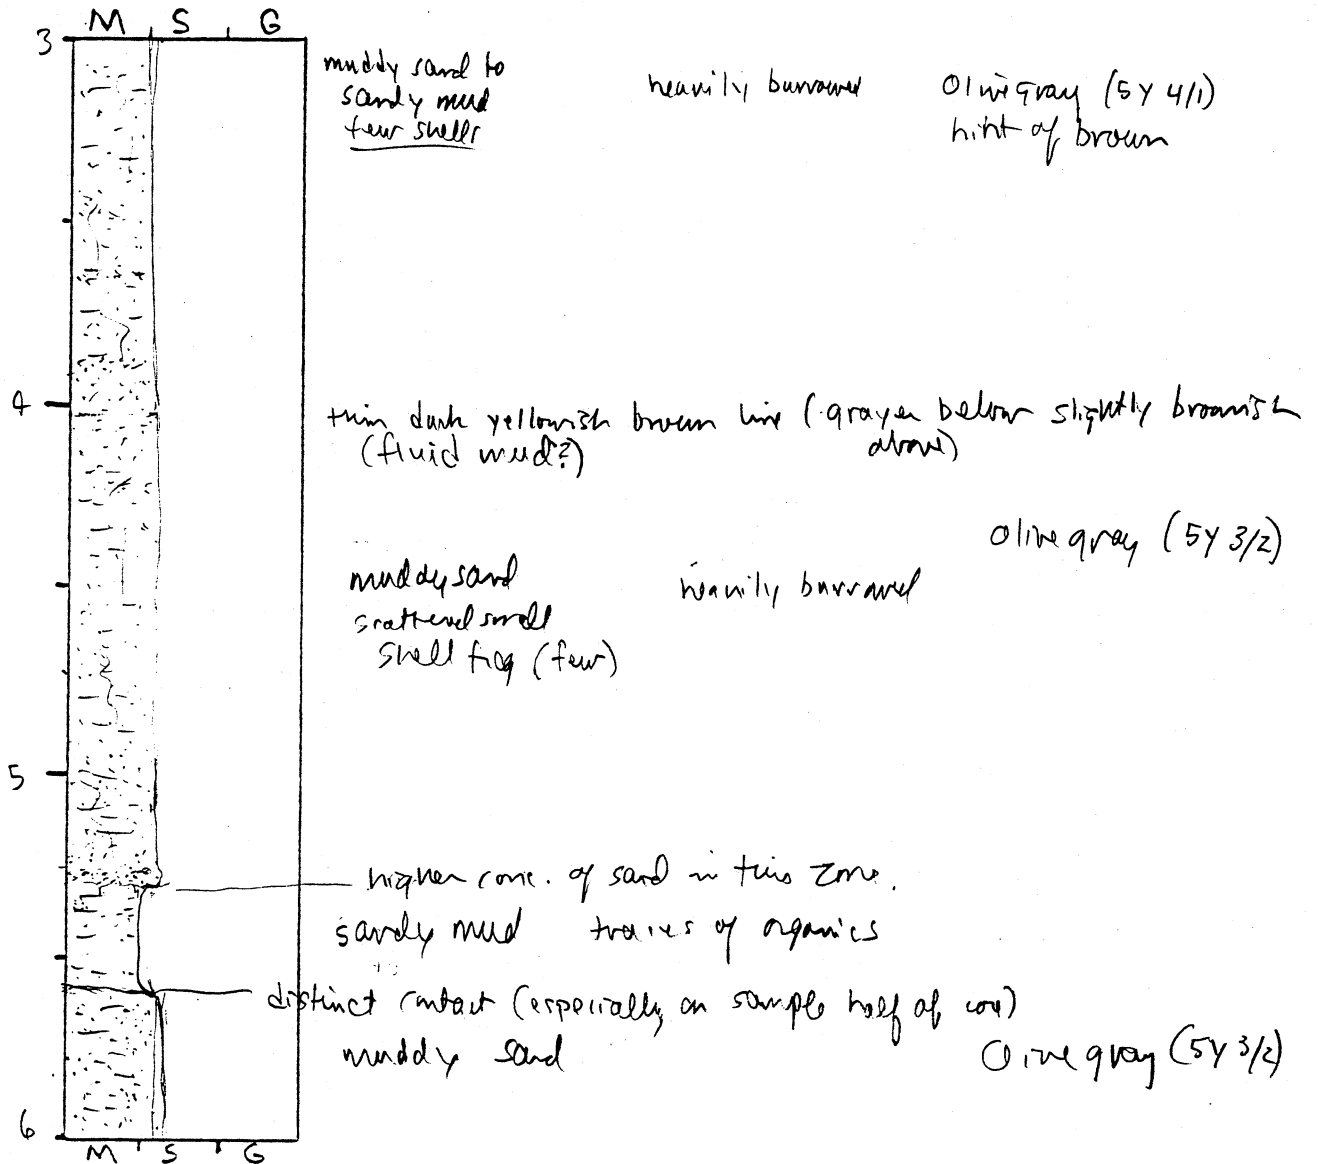 M S G
3
muddy sand to
sandy mud
few shells
heavily burrowed
Olive gray (5Y 4/1)
hint of brown
4
thin dark yellowish brown line (grayer below slightly brownish
above)
(fluid mud?)
Olive gray (5Y 3/2)
muddy sand
scattered small
shell frag (few)
heavily burrowed
5
higher conc. of sand in this zone.
sandy mud traces of organics
distinct contact (especially on sample half of core)
muddy sand
Olive gray (5Y 3/2)
6
M S G